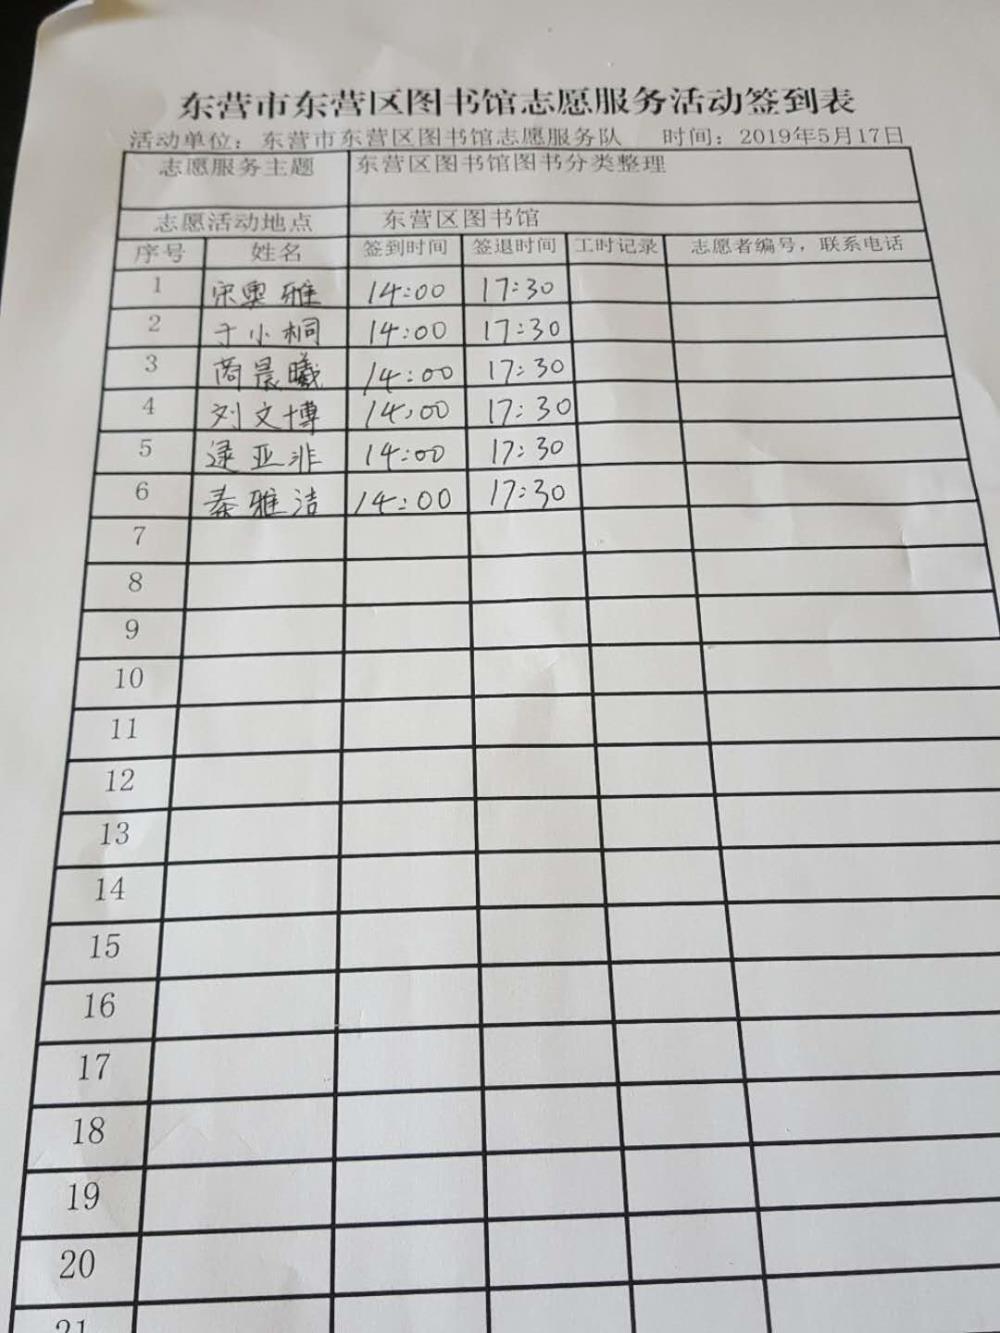 东营市东营区图书馆志愿服务活动签到表
活动单位：东营市东营区图书馆志愿服务队 时间：2019年5月17日
志愿服务主题 东营区图书馆图书分类整理
志愿活动地点 东营区图书馆
序号 姓名 签到时间 签退时间 工时记录 志愿者编号，联系电话
1 宋奥雅 14:00 17:30
2 于小桐 14:00 17:30
3 商晨曦 14:00 17:30
4 刘文博 14:00 17:30
5 逯亚非 14:00 17:30
6 秦雅洁 14:00 17:30
7
8
9
10
11
12
13
14
15
16
17
18
19
20
21